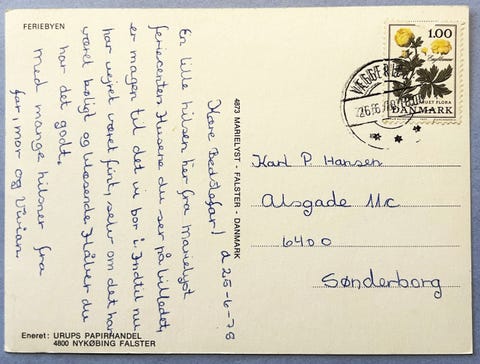 FERIEBYEN
Kære Bedstefar! d 25-6-78
En lille hilsen her fra Marielyst
feriecenter. Husene du ser på billedet,
er magen til det vi bor i. Indtil nu
har vejret været fint, selv om det har
været køligt og blæsende. Håber du
har det godt.
Med mange hilsner fra
far, mor og Vivian.
Eneret: URUPS PAPIRHANDEL
4800 NYKØBING FALSTER
4873 MARIELYST - FALSTER - DANMARK
1.00
Engblomme
FLORA
DANMARK
26.6.78
Karl P. Hansen
Alsgade 11c
6400
Sønderborg